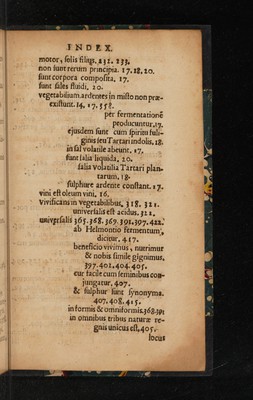 INDEX.
motor, solis filius. 231. 233.
non sunt rerum principia. 17. 18. 20.
sunt corpora composita. 17.
sunt sales fluidi. 20.
vegetabilium ardentes in misto non præ-
existunt. 14. 17. 358.
per fermentationē
producuntur. 17.
ejusdem sunt cum spiritu fuli-
ginis seu Tartari indolis. 18.
in sal volatile abeunt. 17.
sunt salia liquida. 20.
salia volatilia Tartari plan-
tarum. 18.
sulphure ardente constant. 17.
vini est oleum vini. 16.
vivificans in vegetabilibus. 318. 321.
universalis est acidus. 322.
universalis 365. 368. 369. 391. 397. 422.
ab Helmontio fermentum,
dicitur. 417.
beneficio vivimus, nutrimur
& nobis simile gignimus.
397. 401. 404. 405.
cur facile cum seminibus con-
jungatur. 407.
& sulphur sunt synonyma.
407. 408. 415.
informis & omniformis. 368. 391
in omnibus tribus naturæ re-
gnis unicus est. 405.
locus